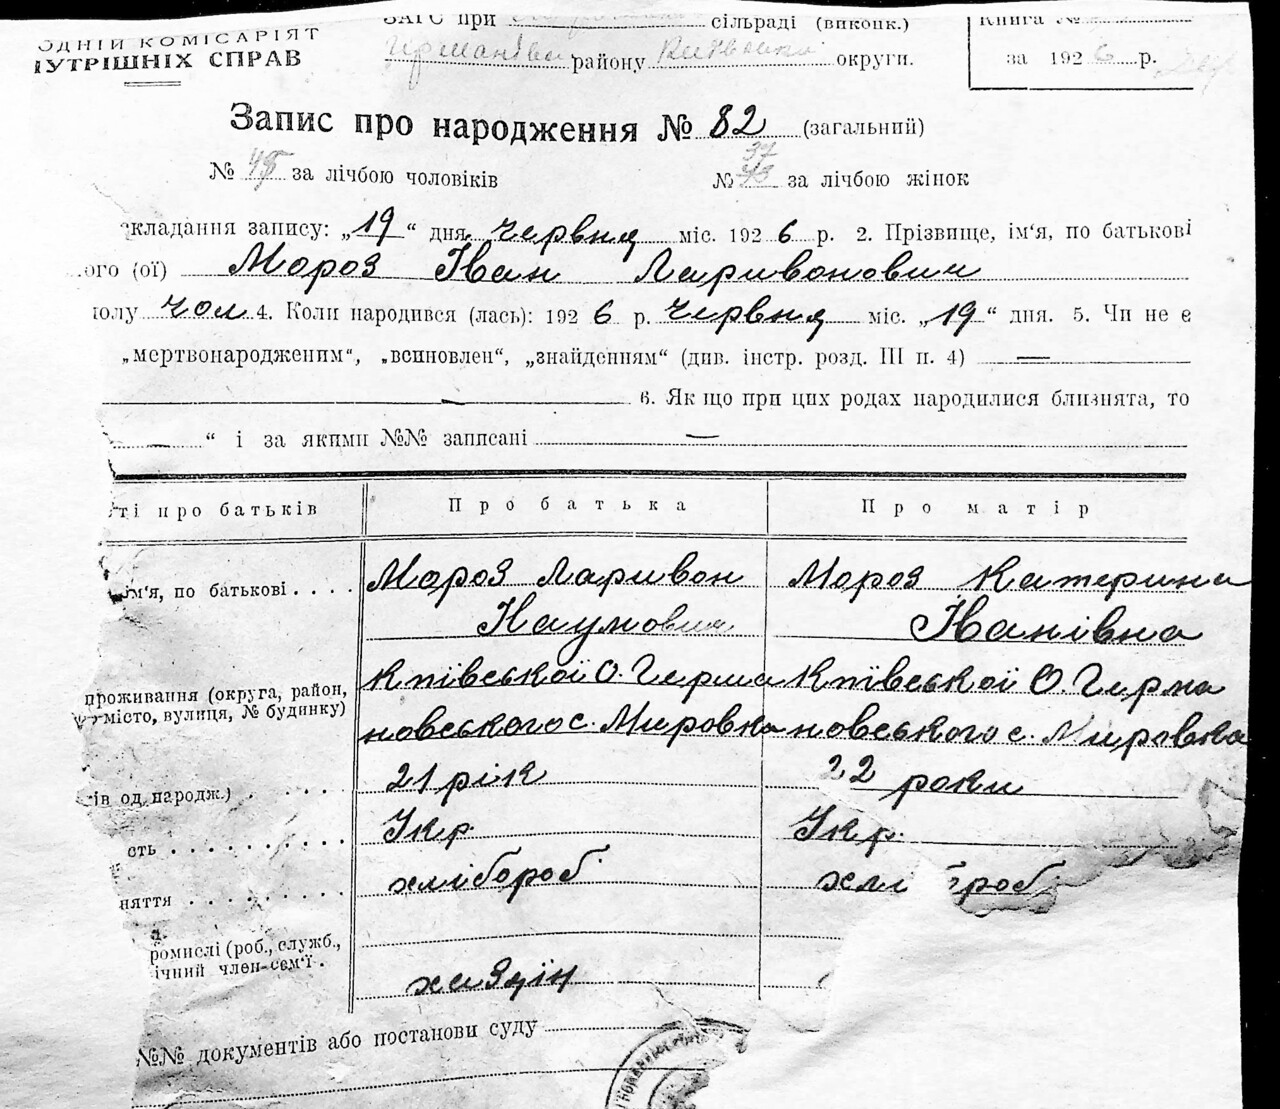 ЗАГС при сільраді (виконк.)
ОДНІЙ КОМІСАРІЯТ
НУТРІШНІХ СПРАВ
району округи.
Книга №
за 1926 р.
Запис про народження № 82 (загальний)
№ за лічбою чоловіків № 37 за лічбою жінок
кладання запису: „19“ дня червня міс. 1926 р. 2. Прізвище, ім‘я, по батькові
ого (ої) Мороз Іван Ларивонович
полу чол 4. Коли народився (лась): 1926 р. червня міс. „19“ дня. 5. Чи не є
„мертвонародженим“, „всиновлен“, „знайденням“ (див. інстр. розд. III п. 4) —
— 6. Як що при цих родах народилися близнята, то
— “ і за якими №№ записані —
ті про батьків Про батька Про матір
ім‘я, по батькові . . . . Мороз Ларивон Мороз Катерина
Наумович Іванівна
проживання (округа, район, Київської О. Герма Київської О. Герма
місто, вулиця, № будинку) новського с. Мировка новського с. Мировка
ів од народж.) . . . . . 21 рік 22 роки
сть . . . . . . . . . . Укр. Укр.
няття . . . . . . . . . хлібороб хлі бороб.
ромислі (роб., служб.,
ічний член-сем‘ї . хазяїн
№№ документів або постанови суду